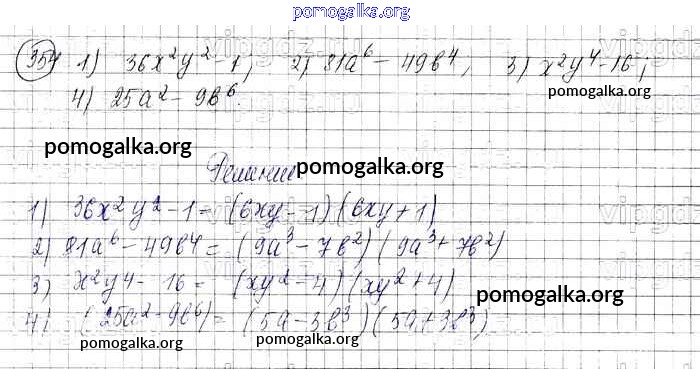 pomogalka.org
354 1) 36x²y² - 1; 2) 81a⁶ - 49b⁴; 3) x²y⁴ - 16;
4) 25a² - 9b⁶.
pomogalka.org
Решение pomogalka.org
1) 36x²y² - 1 = (6xy - 1)(6xy + 1)
2) 81a⁶ - 49b⁴ = (9a³ - 7b²)(9a³ + 7b²)
3) x²y⁴ - 16 = (xy² - 4)(xy² + 4)
pomogalka.org
4) (25a² - 9b⁶) = (5a - 3b³)(5a + 3b³)
pomogalka.org pomogalka.org